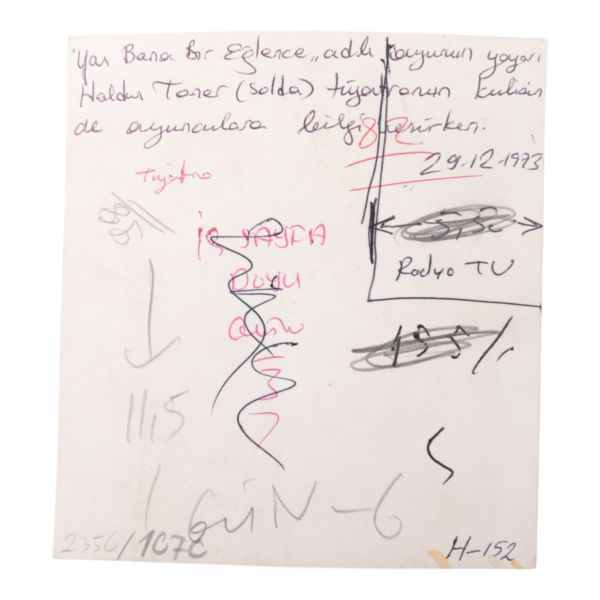 "Yar Bana Bir Eğlence" adlı oyunun yazarı
Haldun Taner (solda) tiyatronun kulisin
de oyunculara bilgi verirken.
82
29.12.1973
Tiyatro
İÇ SAYFA
Radyo TV
11,5
GÜN-6
2356/1078
H-152